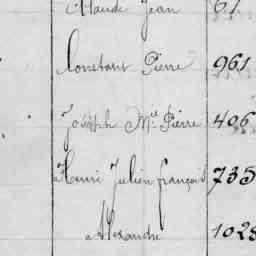 Claude Jean 61
Constant Pierre 961
Joseph Mie Pierre 406
Henri Julien françois 735
Alexandre 1028